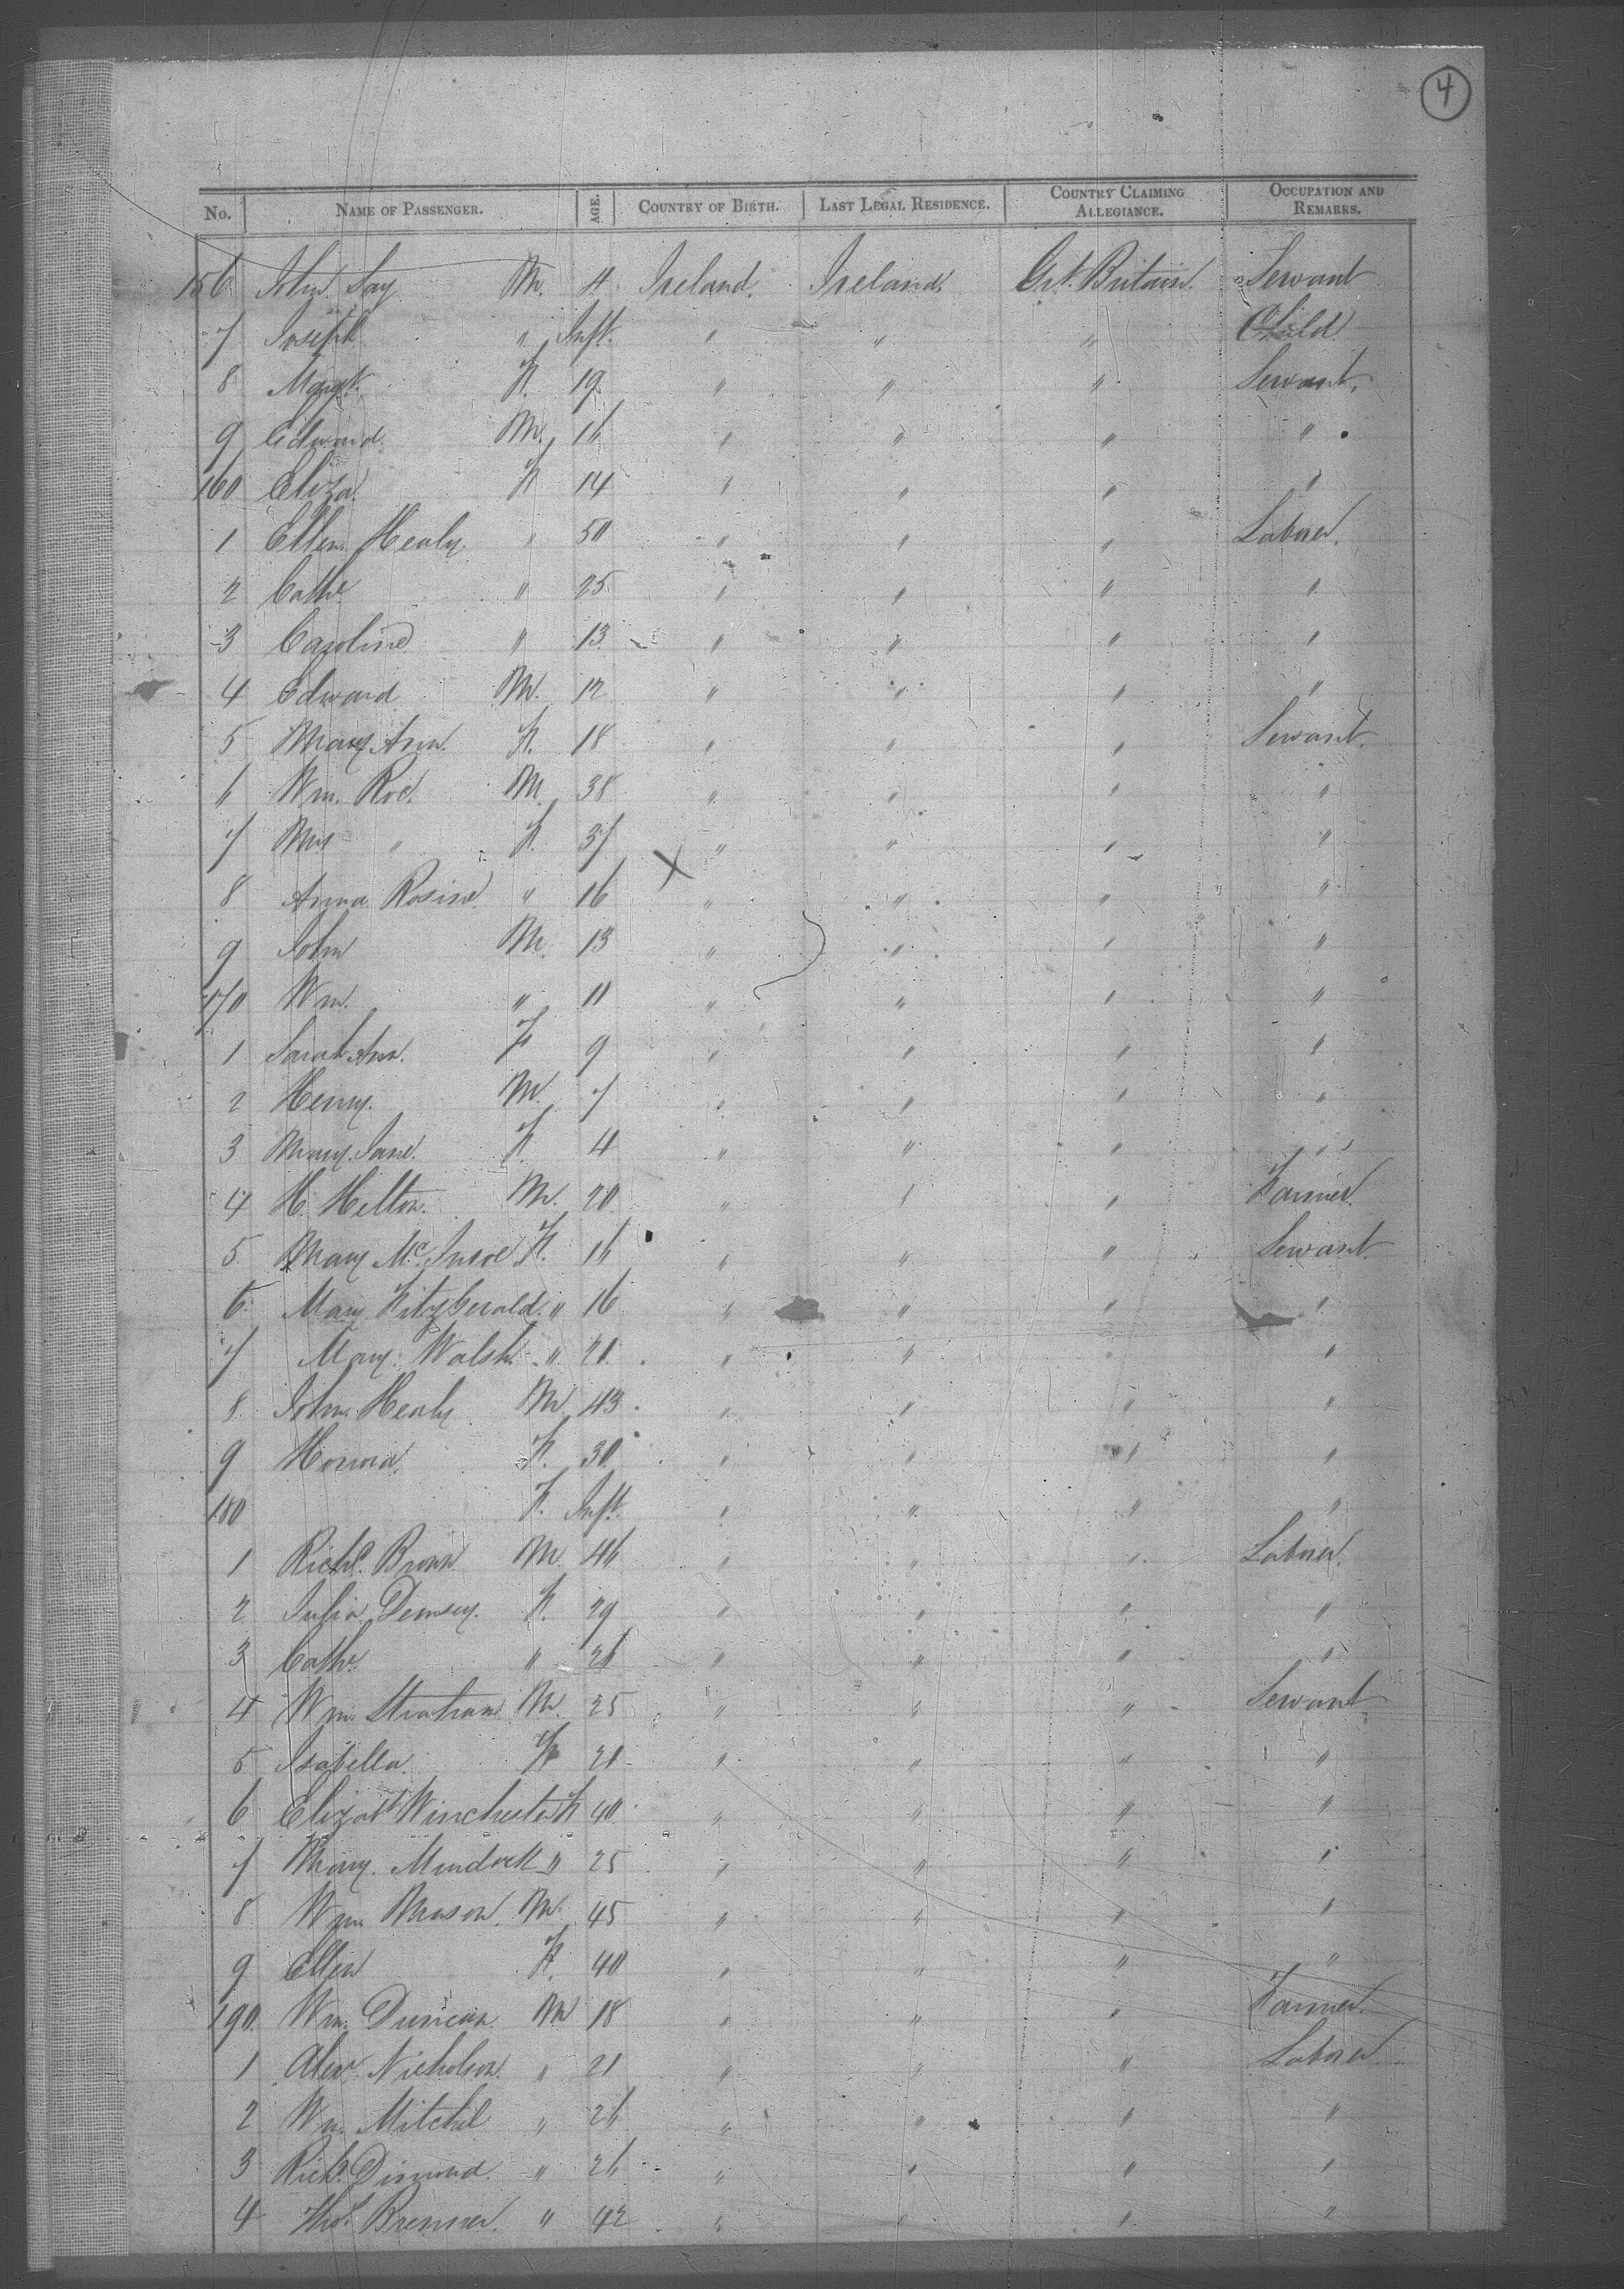 4
No. NAME OF PASSENGER. AGE. COUNTRY OF BIRTH. LAST LEGAL RESIDENCE. COUNTRY CLAIMING ALLEGIANCE. OCCUPATION AND REMARKS.
156 John M. 4 Ireland. Ireland. Grt. Britain. Servant
7 Joseph " Inft. " " " Child
8 Margt. F. 19 " " " Servant.
9 Edward. M. 16 " " " "
160 Eliza. F. 14 " " " "
1 Ellen Healy. " 50 " " " Laborer.
2 Cathe " 25 " " " "
3 Caroline " 13 " " " "
4 Edward. M. 12 " " " "
5 Mary Ann. F. 18 " " " Servant.
6 Wm. Roe. M. 38 " " " "
7 Mrs " F. 37 " " " "
8 Anna Rosine " 16 " " " "
9 John M. 13 " " " "
170 Wm. " 11 " " " "
1 Sarah Ann. F 9 " " " "
2 Henry. M. 7 " " " "
3 Mary Jane. F. 4 " " " "
4 H. Hilton. M. 20 " " " Farmer.
5 Mary F. 16 " " " Servant
6 Mary FitzGerald. " 16 " " " "
7 Mary Walsh. " 20 " " " "
8 John Healy M. 43 " " " "
9 Honora. F. 30 " " " "
180 F. Inft. " " " "
1 Richd. Brown M. 46 " " " Laborer.
2 Julia Demsey. F. 29 " " " "
3 Cathe. " 26 " " " "
4 Wm. Strahan M. 25 " " " Servant
5 Isabella. F 20 " " " "
6 Elizabt Winchester F 40 " " " "
7 Mary Murdock " 25 " " " "
8 Wm. Mason. M. 45 " " " "
9 Ellen F. 40 " " " "
190. Wm. Duncan. M 18 " " " Farmer.
1 Alexr. Nicholson. " 21 " " " Laborer.
2 Wm. Mitchel " 26 " " " "
3 Richd. Dimond. " 26 " " " "
4 Thos. Brenner. " 42 " " " "